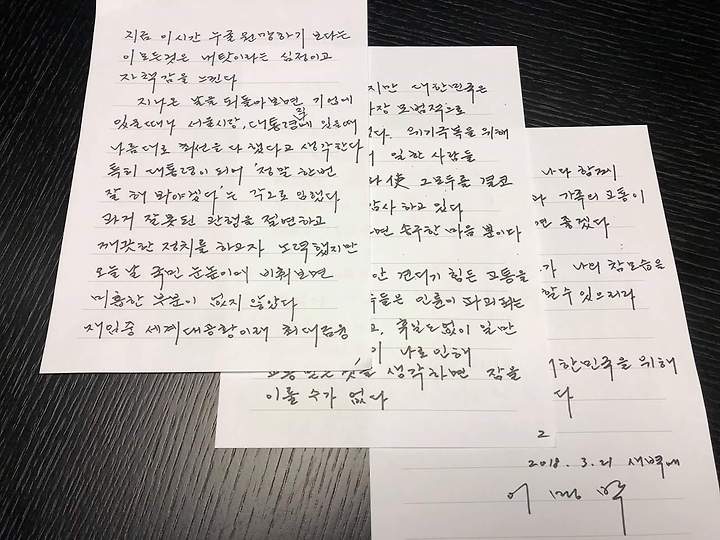 지금 이시간 누굴 원망하기 보다는
이 모든것은 내탓이라는 심정이고
자책감을 느낀다
지나온 날을 되돌아보면 기업에
있을때나 서울시장, 대통령직에 있을때
나름대로 최선을 다 했다고 생각한다
특히 대통령이 되어 '정말 한번
잘 해 봐야겠다'는 각오로 임했다
과거 잘못된 관행을 절연하고
깨끗한 정치를 하고자 노력했지만
오늘 날 국민 눈높이에 비춰보면
미흡한 부분이 없지 않았다
재임중 세계대공황이래 최대금융
지만 대한민국은
장 모범적으로
다. 위기극복을 위해
일한 사람들
使 그모두를 결코
감사하고 있다
면 송구한 마음 뿐이다
안 견디기 힘든 고통을
들은 인륜이 파괴되는
고, 휴일도 없이 일만
이 나로 인해
고통받는 것을 생각하면 잠을
이룰 수가 없다
2
나와 함께
와 가족의 고통이
면 좋겠다
가 나의 참모습을
할 수 있으리라
대한민국을 위해
다
2018. 3. 21 새벽에
이명박